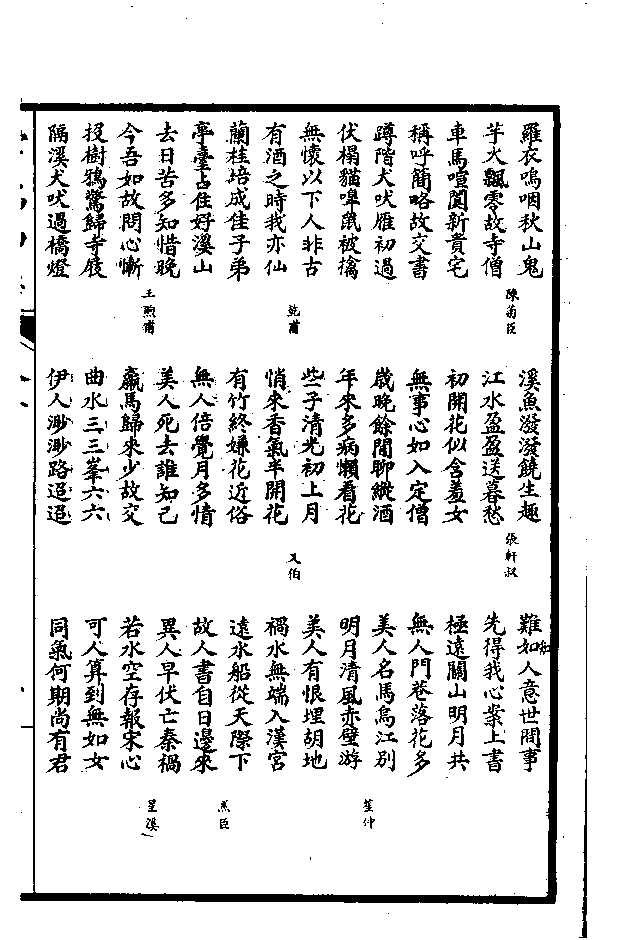 羅衣嗚咽秋山鬼
芋火飄零故寺僧
陳菊臣
車馬喧闐新貴宅
稱呼簡略故交書
蹲階犬吠雁初過
伏榻貓嗥鼠被擒
無懷以下人非古
有酒之時我亦仙
乾甫
蘭桂培成佳子弟
亭臺占住好溪山
去日苦多知惜晚
今吾如故問心慚
王煦甫
投樹鴉驚歸寺屐
隔溪犬吠過橋燈
溪魚潑潑饒生趣
江水盈盈送暮愁
張軒叔
初開花似含羞女
無事心如入定僧
歲晚餘閒聊縱酒
年來多病懶看花
些子清光初上月
悄來香氣半開花
又伯
有竹終嫌花近俗
無人倍覺月多情
美人死去誰知己
羸馬歸來少故交
曲水三三峯六六
伊人渺渺路迢迢
難如人意世間事
先得我心案上書
極遠關山明月共
無人門巷落花多
美人名馬烏江別
明月清風赤壁游
笙仲
美人有恨埋胡地
禍水無端入漢宮
遠水船從天際下
故人書自日邊來
臣
異人早伏亡秦禍
若水空存報宋心
星溪
可人算到無如女
同氣何期尚有君